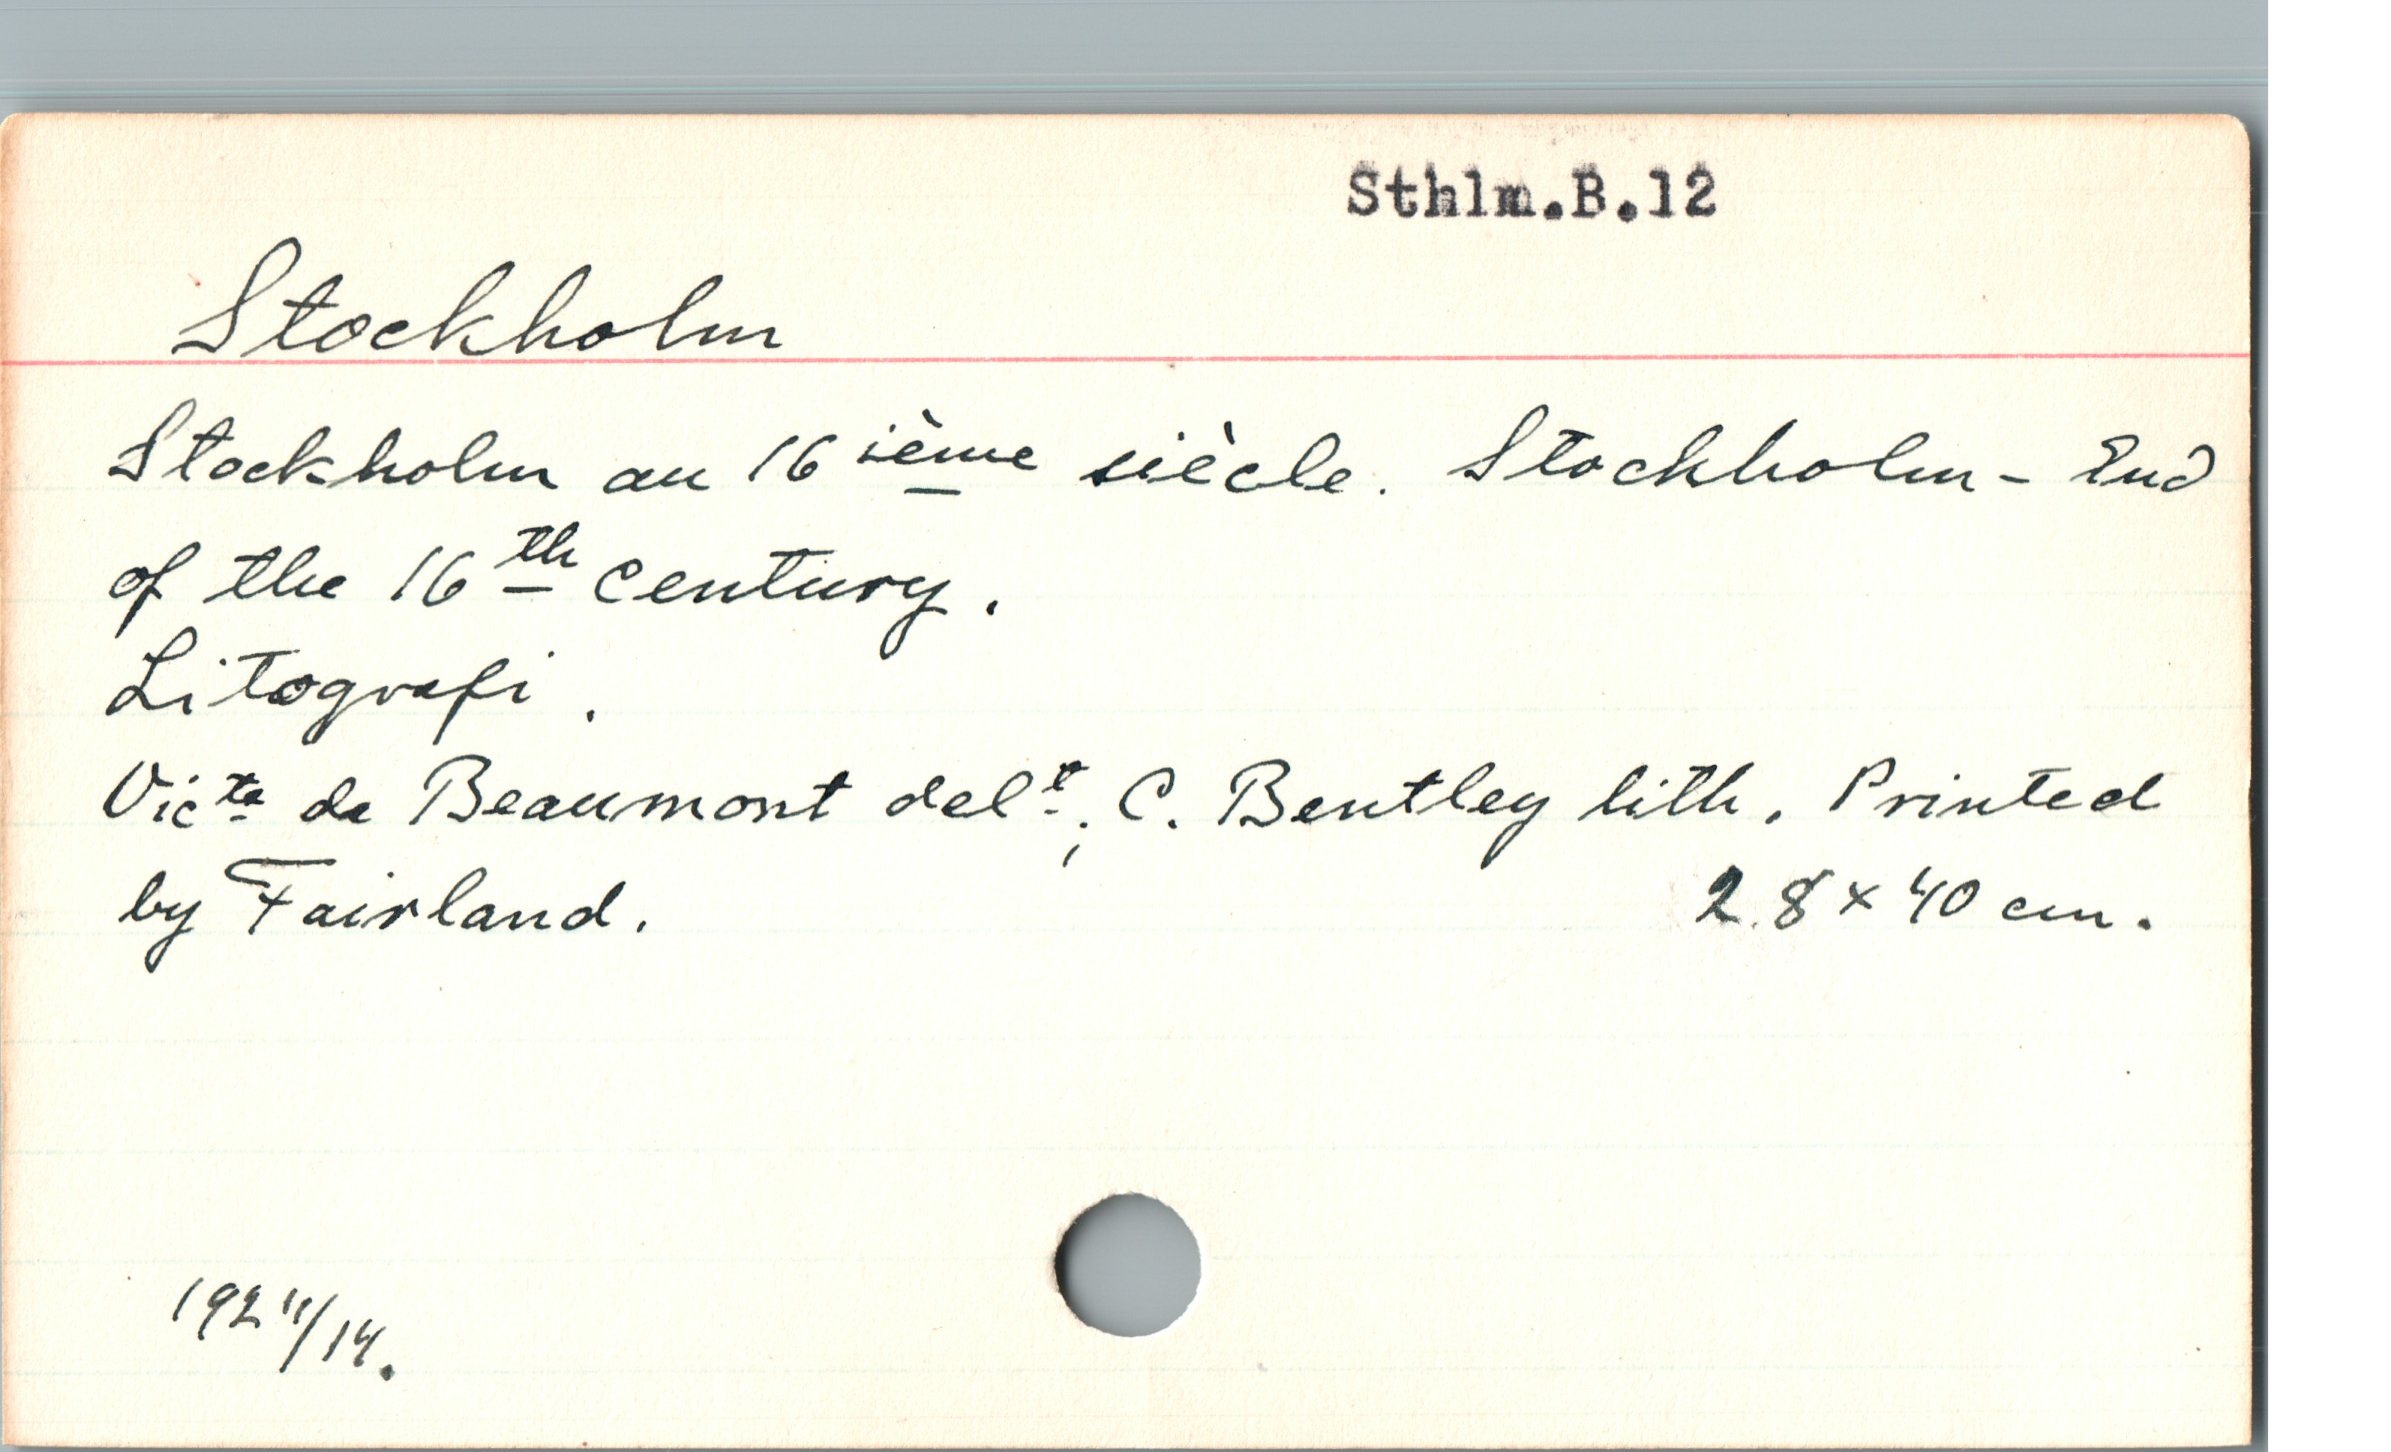 Sthlm.B.12
Stockholm
Stockholm au 16ième siècle. Stockholm - End
of the 16th century.
Litografi.
Victe de Beaumont delt; C. Bentley lith. Printed
by Fairland. 28 x 40 cm.
192 11/14.